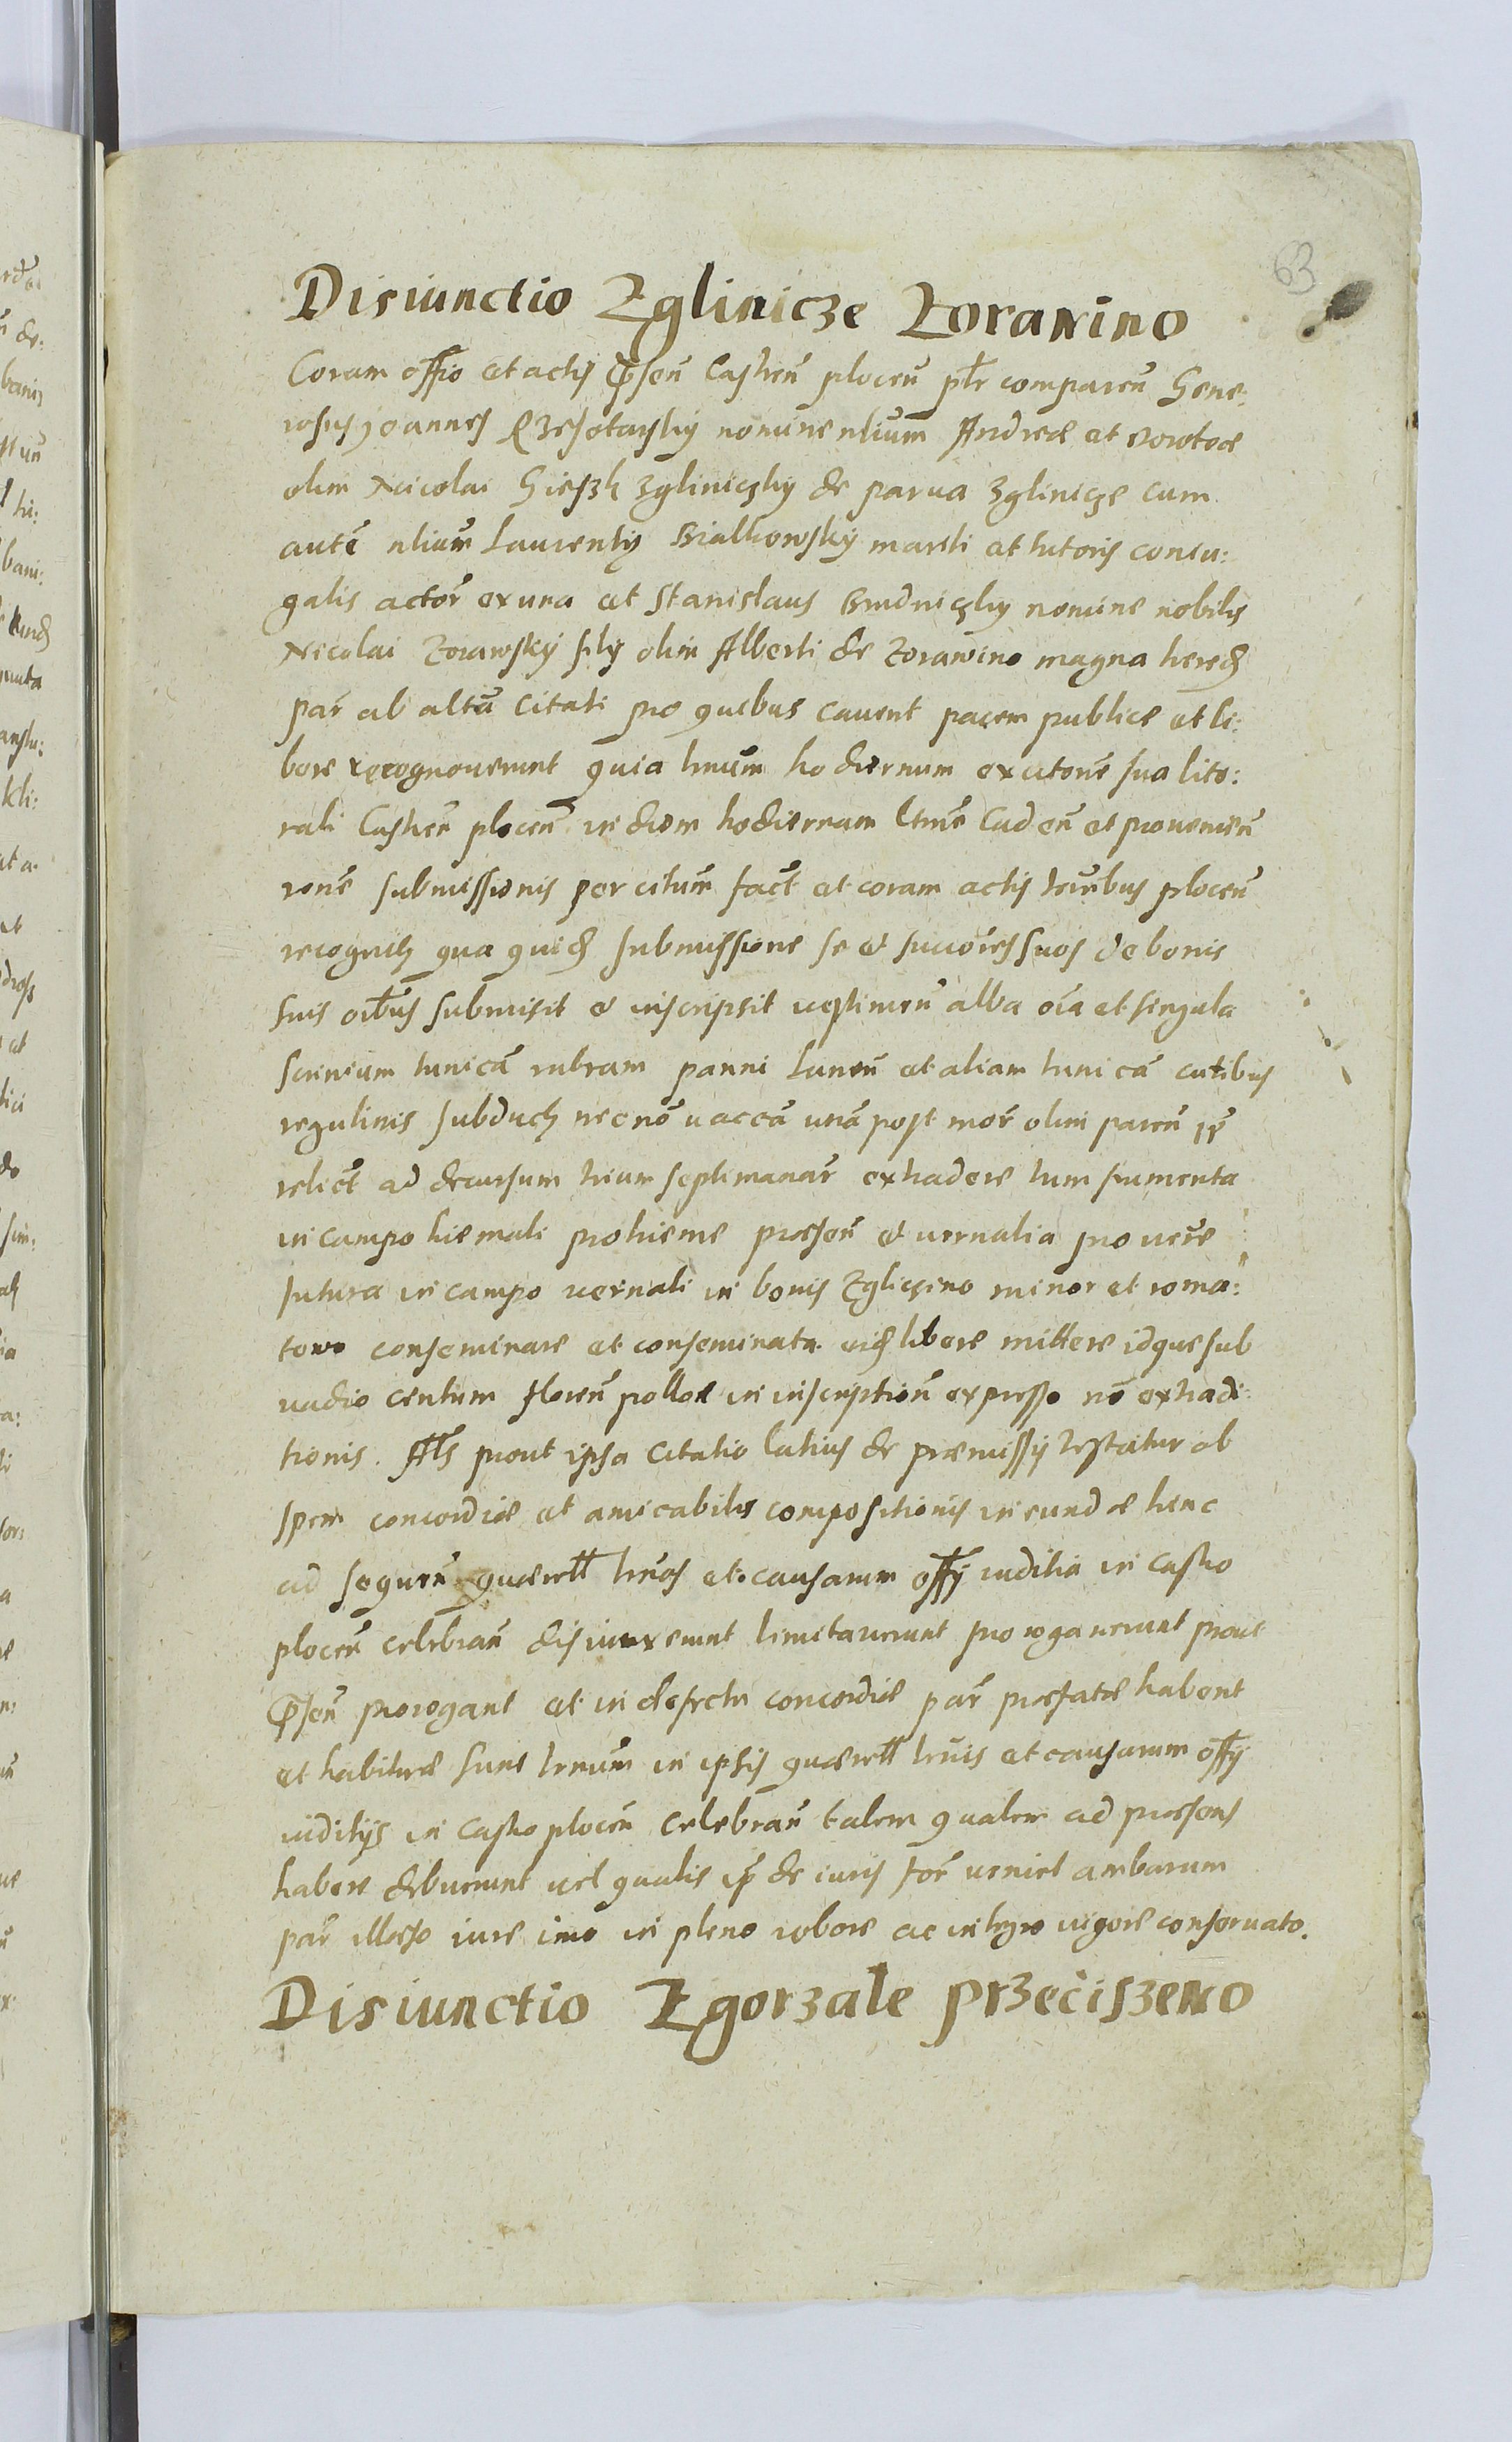 63
Disiunctio Zglinicze Zorawino
Coram offio et actis p̃sen̄ Castren̄ plocen̄ pt̃r comparen̄ Gene:
rosus Joannes Rzeszotarsky nomine nliūm Andreæ et Doroteæ
olim Nicolai Gieszk Zgliniczky de parua Zglinicze cum
autē nliūm Laurentÿ Bialkowsky mariti et tutoris coniu:
galis actor̃ ex una et Stanislaus Brudniczky nomine nobilis
Nicolai Zorawsky filÿ olim Alberti de Zorawino magna hered
par̃ ab altā Citati pro quibus cauent pacem publice et li:
bere recognouerunt quia tmūm hodiernum ex citone sua lite:
rali Castren̄ plocen̄ in diem hodiernam ltme Caden̄ et prouenien̄
rone submissionis per citūm fact et coram actis trrībus plocen̄
recognit qua quid submissione se et succores suos de bonis
suis oībus submisit et inscripsit uestimen̄ alba oīa et singula
scrinium tunicā rubram panni Lunen̄ et aliam tunicā cutibus
regulinis subduct necnō uaccā unā post mor̃ olim paren̄ ip
relict ad decursum trium septimanar̃ extradere tum frumenta
in campo hiemali pro hieme præsen̄ et uernalia pro uere
futura in campo uernali in bonis Zgliczino minor et roma:
towo conseminare et conseminata eid libere mittere idque sub
uadio centum floren̄ pollcal in inscription̄ expresso nō extradi:
tionis. Als prout ipsa Citatio latius de præmissis testatur ob
spem concordiæ et amicabilis compositionis ineundæ hinc
ad sequen̄ quærell trnōs et causarum offÿ iuditia in castro
plocen̄ celebran̄ disiunxerunt limitauerunt prorogauerunt prout
p̃sen̄ prorogant et in defectu concordiæ par̃ præfatæ habent
et habituræ sunt trnūm in ipsis quærell trnīs et causarum offÿ
iuditÿs in castro plocen̄ celebran̄ talem qualem ad præsens
habere debuerunt uel qualis ip de iuris for̃ ueniet ambarum
par̃ illæso iure imo in pleno robore ac integro uigore conseruato.
Disiunctio Zgorzale przeciszewo